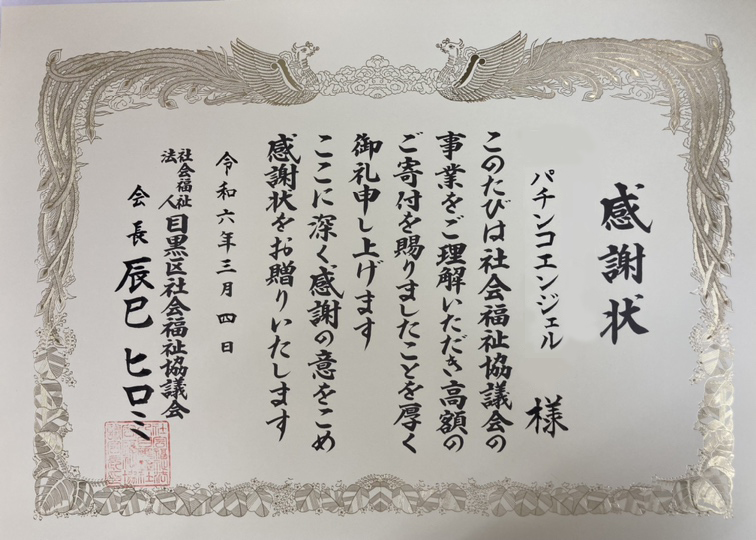 感謝状
パチンコエンジェル 様
このたびは社会福祉協議会の
事業をご理解いただき高額の
ご寄付を賜りましたことを厚く
御礼申し上げます
ここに深く感謝の意をこめ
感謝状をお贈りいたします
令和六年三月四日
社会福祉法人 目黒区社会福祉協議会
会長 辰巳 ヒロミ